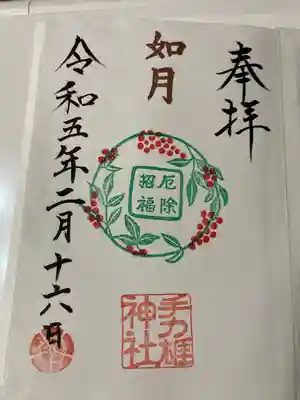 奉拝
如月
厄除
招福
手力雄
神社
令和五年二月十六日